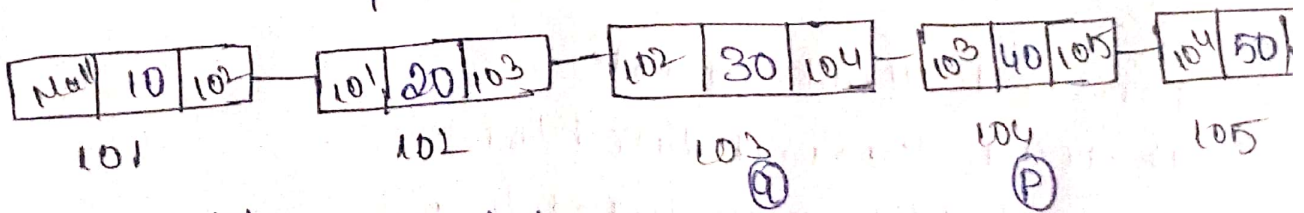 Null 10 102 101 20 103 102 30 104 103 40 105 104 50
101 102 103 104 105
q P